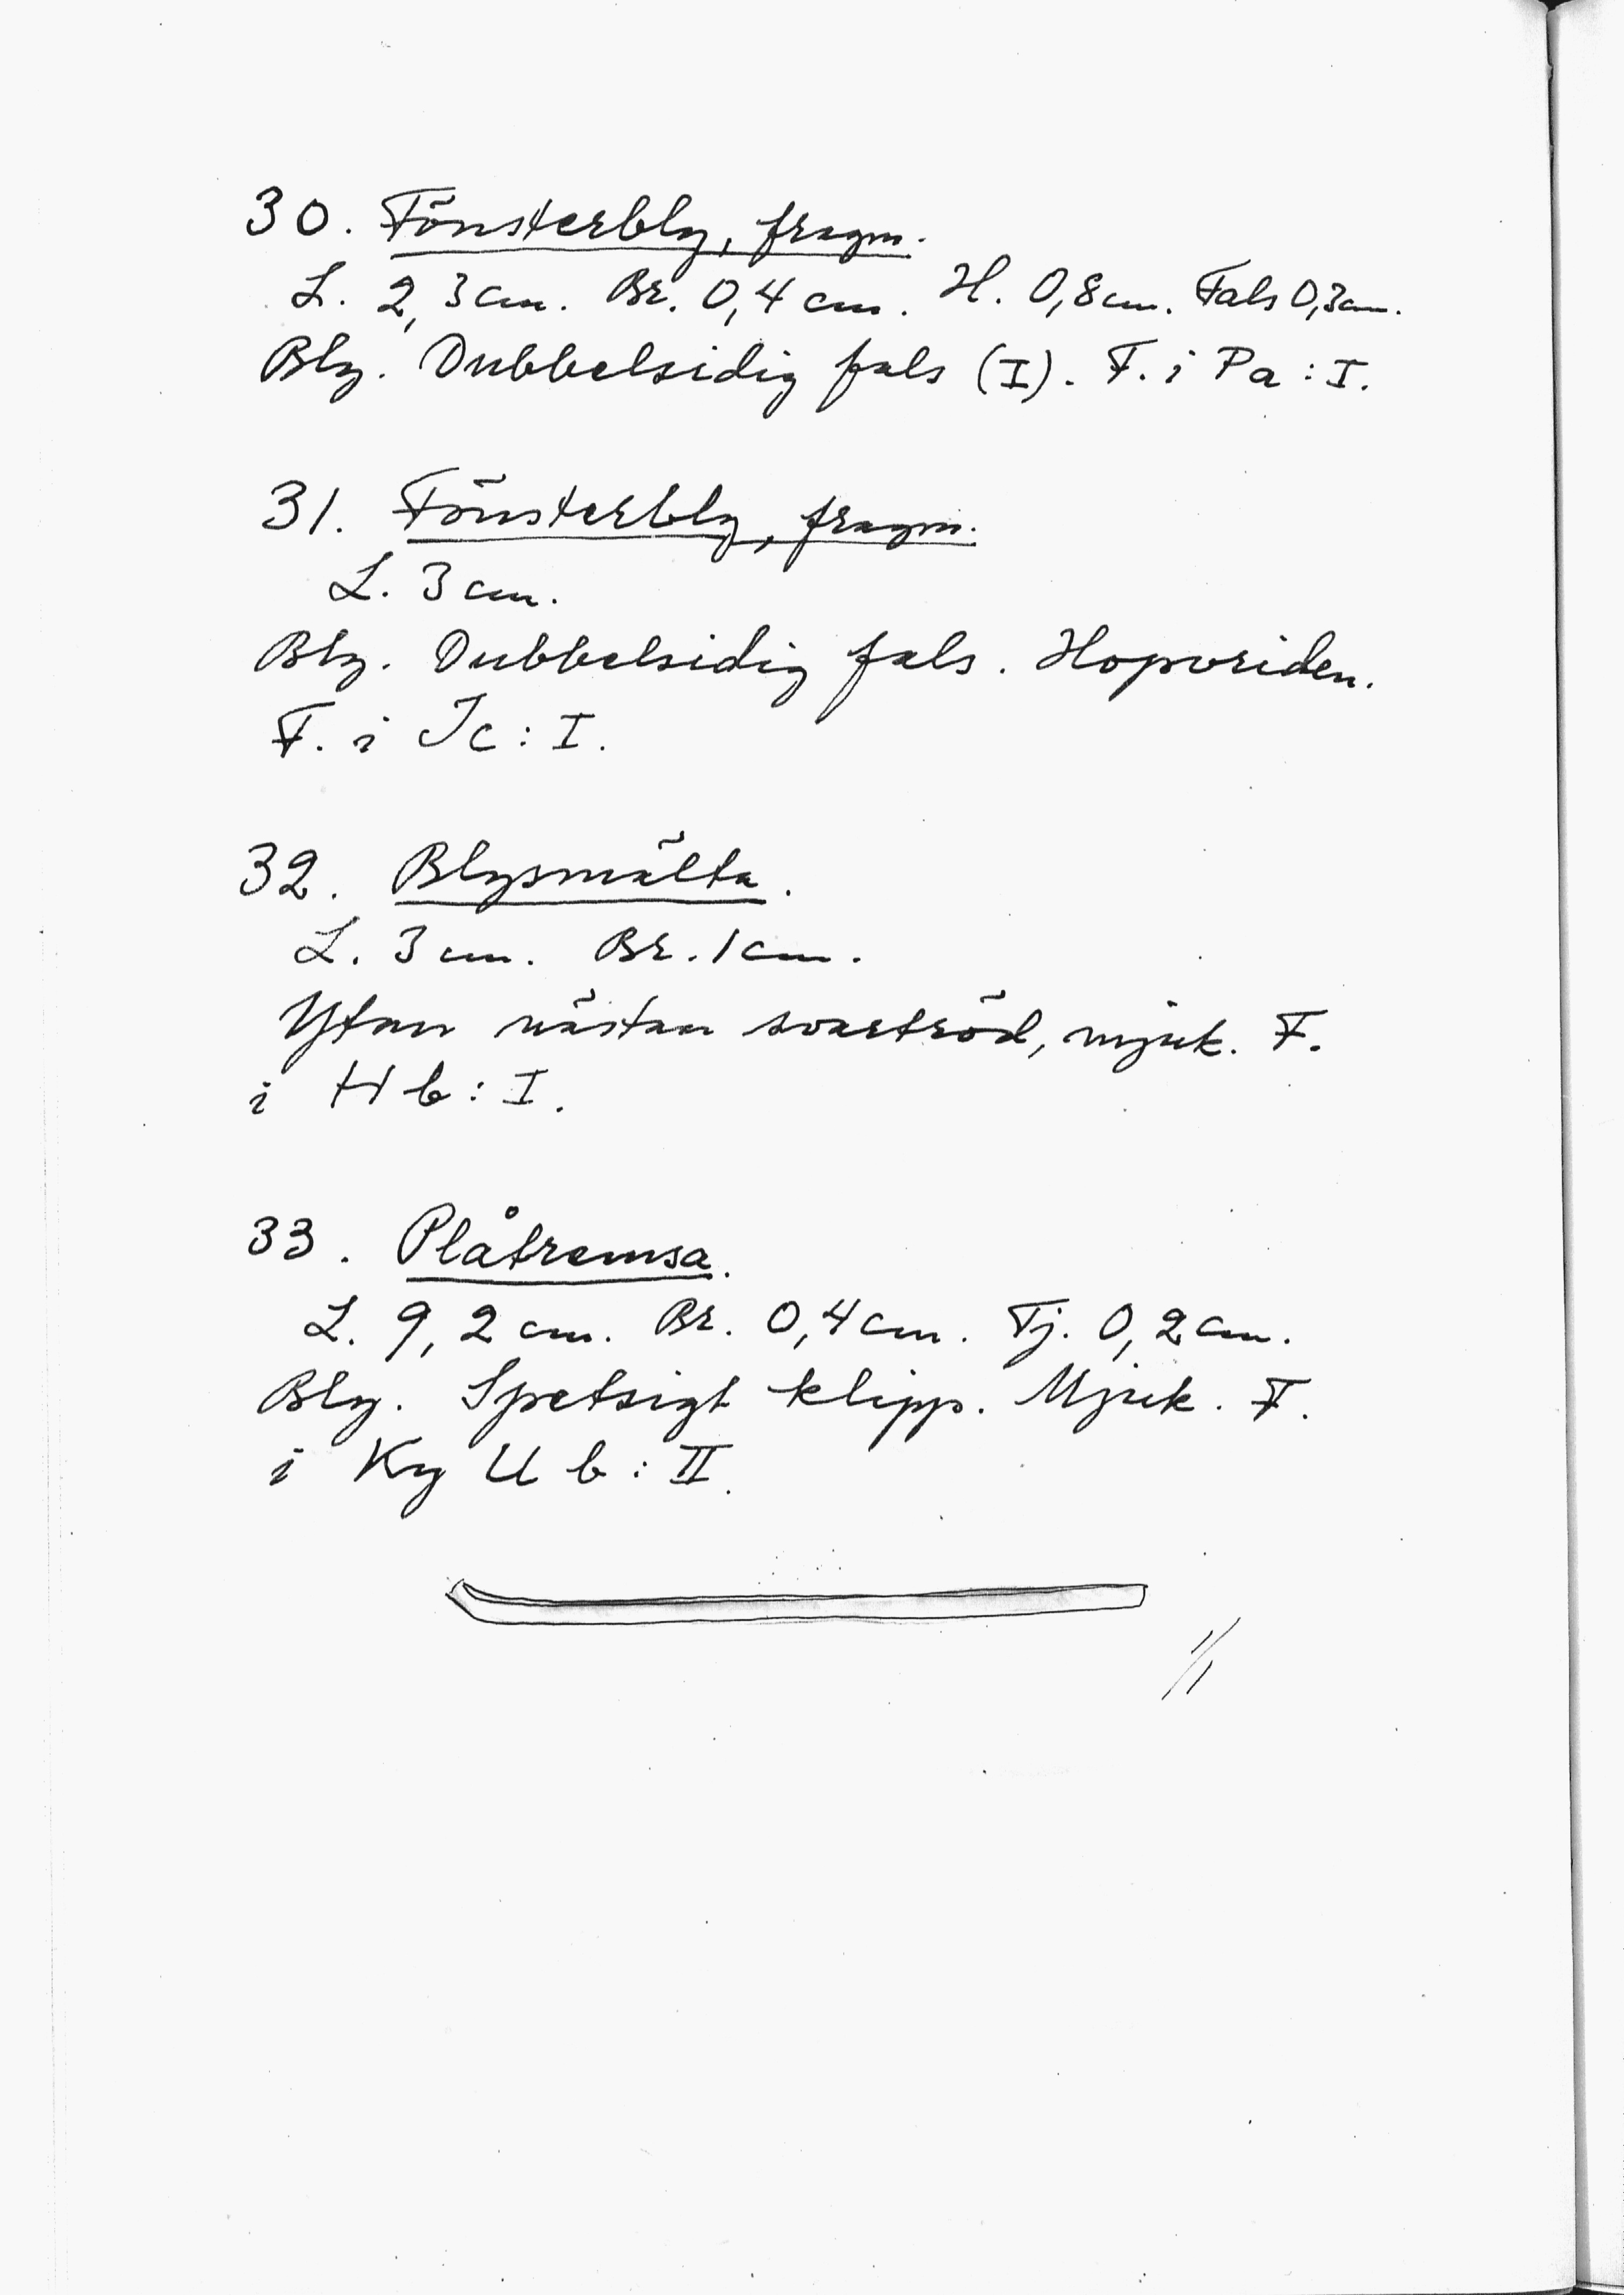 30. Fönsterbly, fragm.
L. 2,3 cm. Br. 0,4 cm. H. 0,8 cm. Fals 0,3 cm.
Bly. Dubbelsidig fals (I). F. i Pa : I.
31. Fönsterbly, fragm.
L. 3 cm.
Bly. Dubbelsidig fals. Hopvriden.
F. i Jc : I.
32. Blysmälta.
L. 3 cm. Br. 1 cm.
Ytan nästan svartröd, mjuk. F.
i H b : I.
33. Plåtremsa.
L. 9,2 cm. Br. 0,4 cm. Tj. 0,2 cm.
Bly. Spetsigt klipp. Mjuk. F.
i Ky U b : II.
1/1